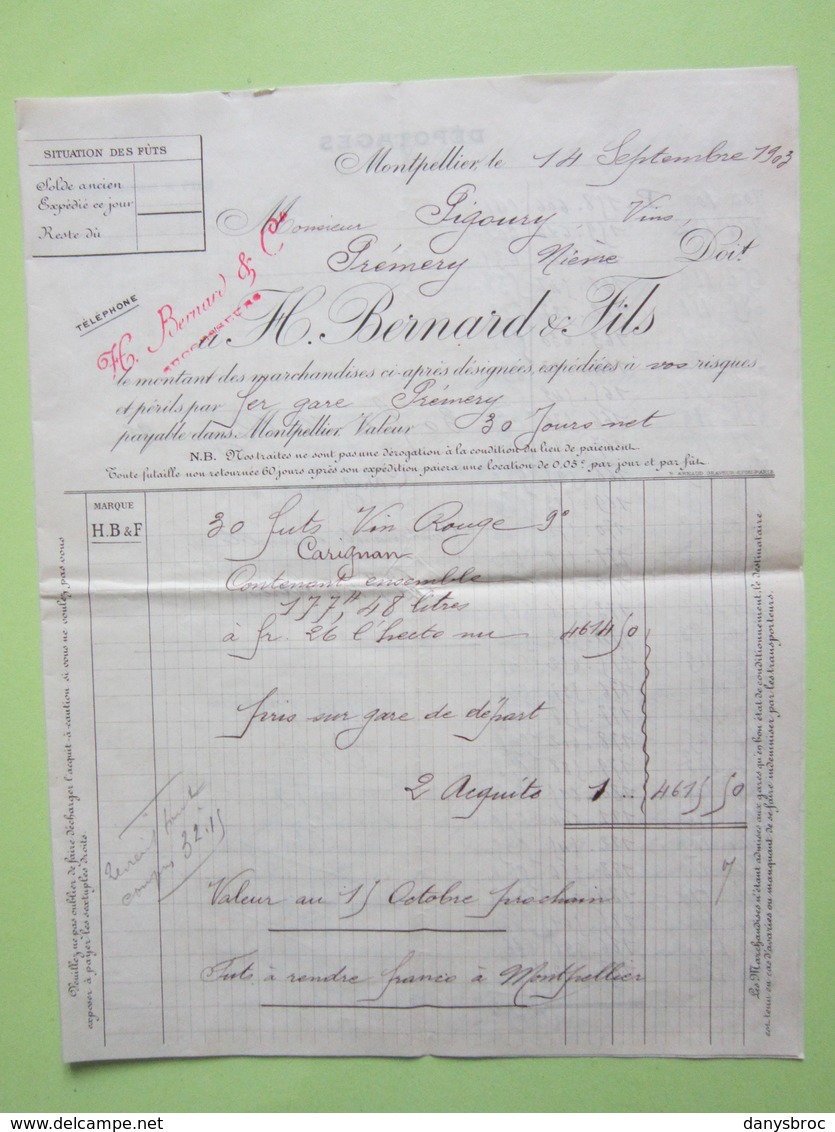 SITUATION DES FÛTS
Solde ancien
Expédié ce jour
Reste dû
Montpellier, le 14 Septembre 1903
Monsieur Pigoury Vins,
Prémery Nièvre Doit
TÉLÉPHONE
H. Bernard & Cie
à H. Bernard & Fils
le montant des marchandises ci-après désignées, expédiées à vos risques
et périls par fer gare Prémery
payable dans Montpellier Valeur 30 Jours net
N.B. Nos traites ne sont pas une dérogation à la condition du lieu de paiement.
Toute futaille non retournée 60 jours après son expédition, paiera une location de 0,05c par jour et par fût.
MARQUE
H.B & F
30 futs Vin Rouge 9°
Carignan
Contenant ensemble
177H, 48 litres
à fr. 26 l'hecto nu 4614 50
pris sur gare de départ
2 Acquits 1 .. 4615 50
compris 32.15
7
Valeur au 15 Octobre prochain
Futs à rendre franco à Montpellier
Veuillez ne pas oublier de faire décharger l'acquit-à-caution si vous ne voulez pas vous
exposer à payer les sextuples droits.
Les Marchandises n'étant admises aux gares qu'en bon état de conditionnement, le destinataire
est tenu en cas d'avaries ou manquant de se faire indemniser par les transporteurs.
Delcampe.net
danysbroc